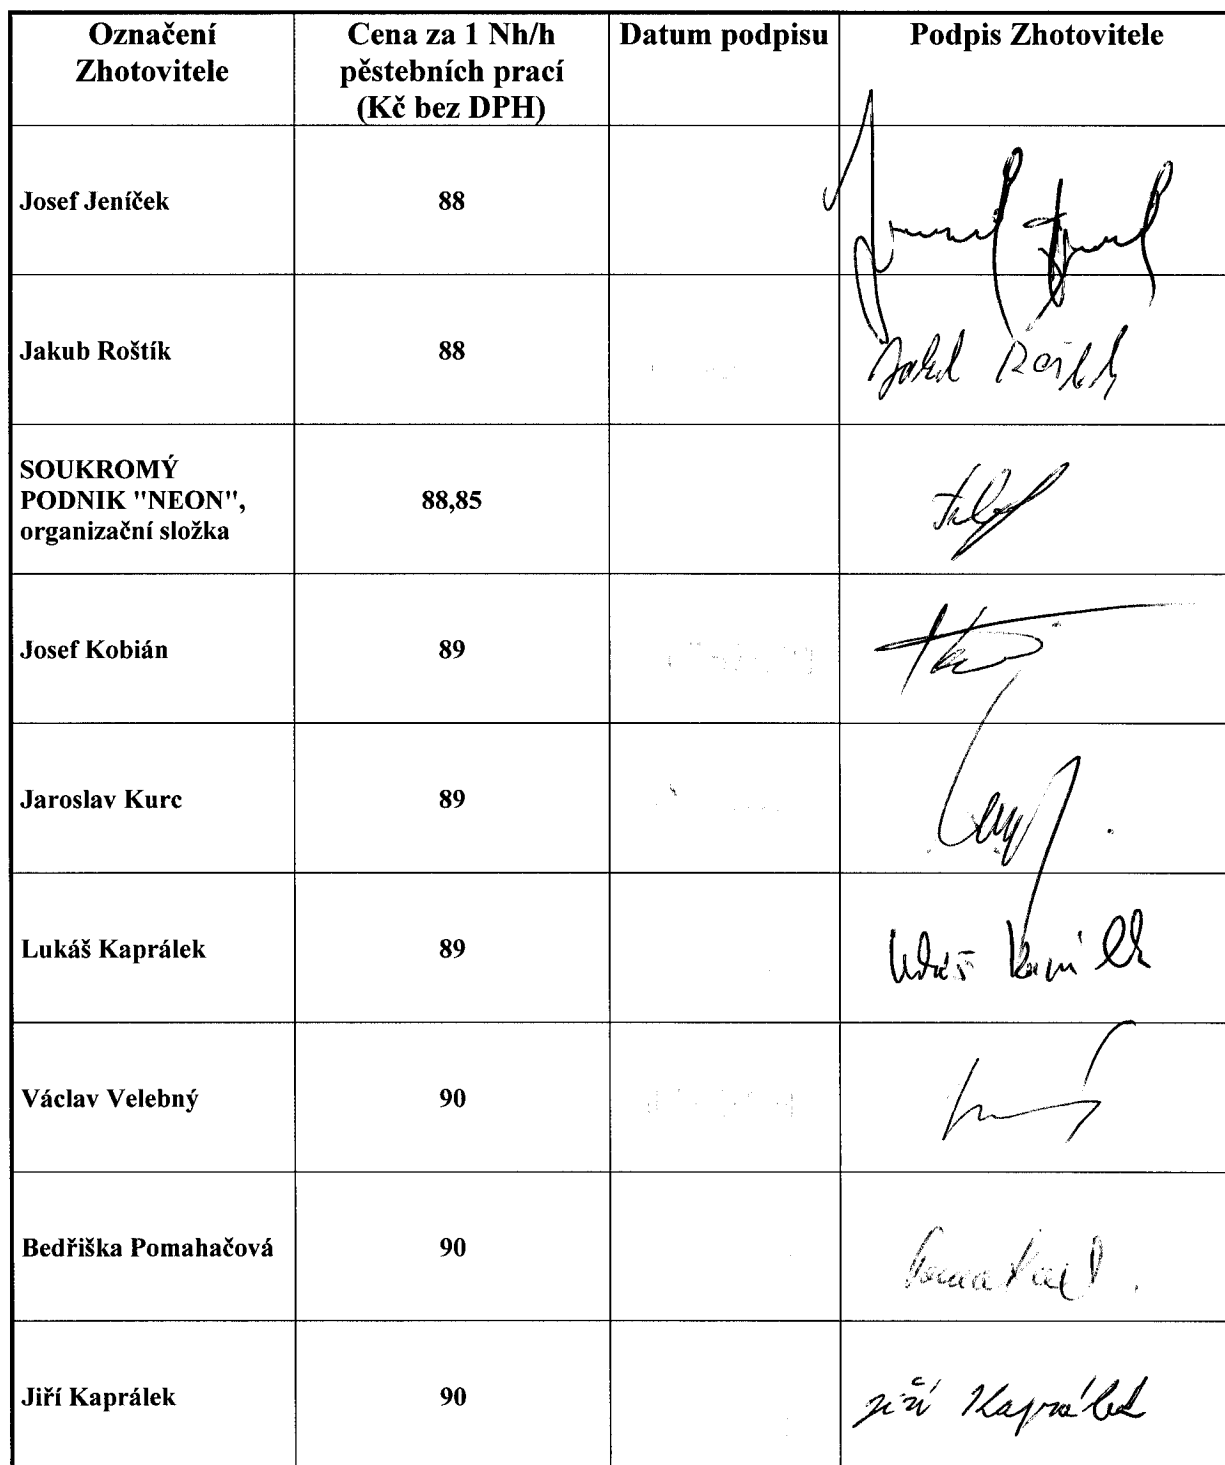 Označení Zhotovitele
Cena za 1 Nh/h pěstebních prací (Kč bez DPH)
Datum podpisu
Podpis Zhotovitele
Josef Jeníček
88
Jakub Roštík
88
SOUKROMÝ
PODNIK "NEON",
organizační složka
88,85
Josef Kobián
89
Jaroslav Kurc
89
Lukáš Kaprálek
89
Václav Velebný
90
Bedřiška Pomahačová
90
Jiří Kaprálek
90
Jiří Kaprálek